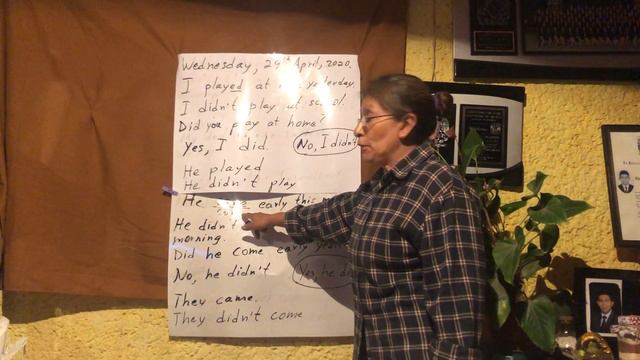 Wednesday, 29th April, 2020.
I played at yesterday
I didn't play at school.
Did you play at home?
Yes, I did. No, I didn't
He played
He didn't play
He early this
He didn't
morning.
Did he come early
No, he didn't Yes, he did
They came.
They didn't come